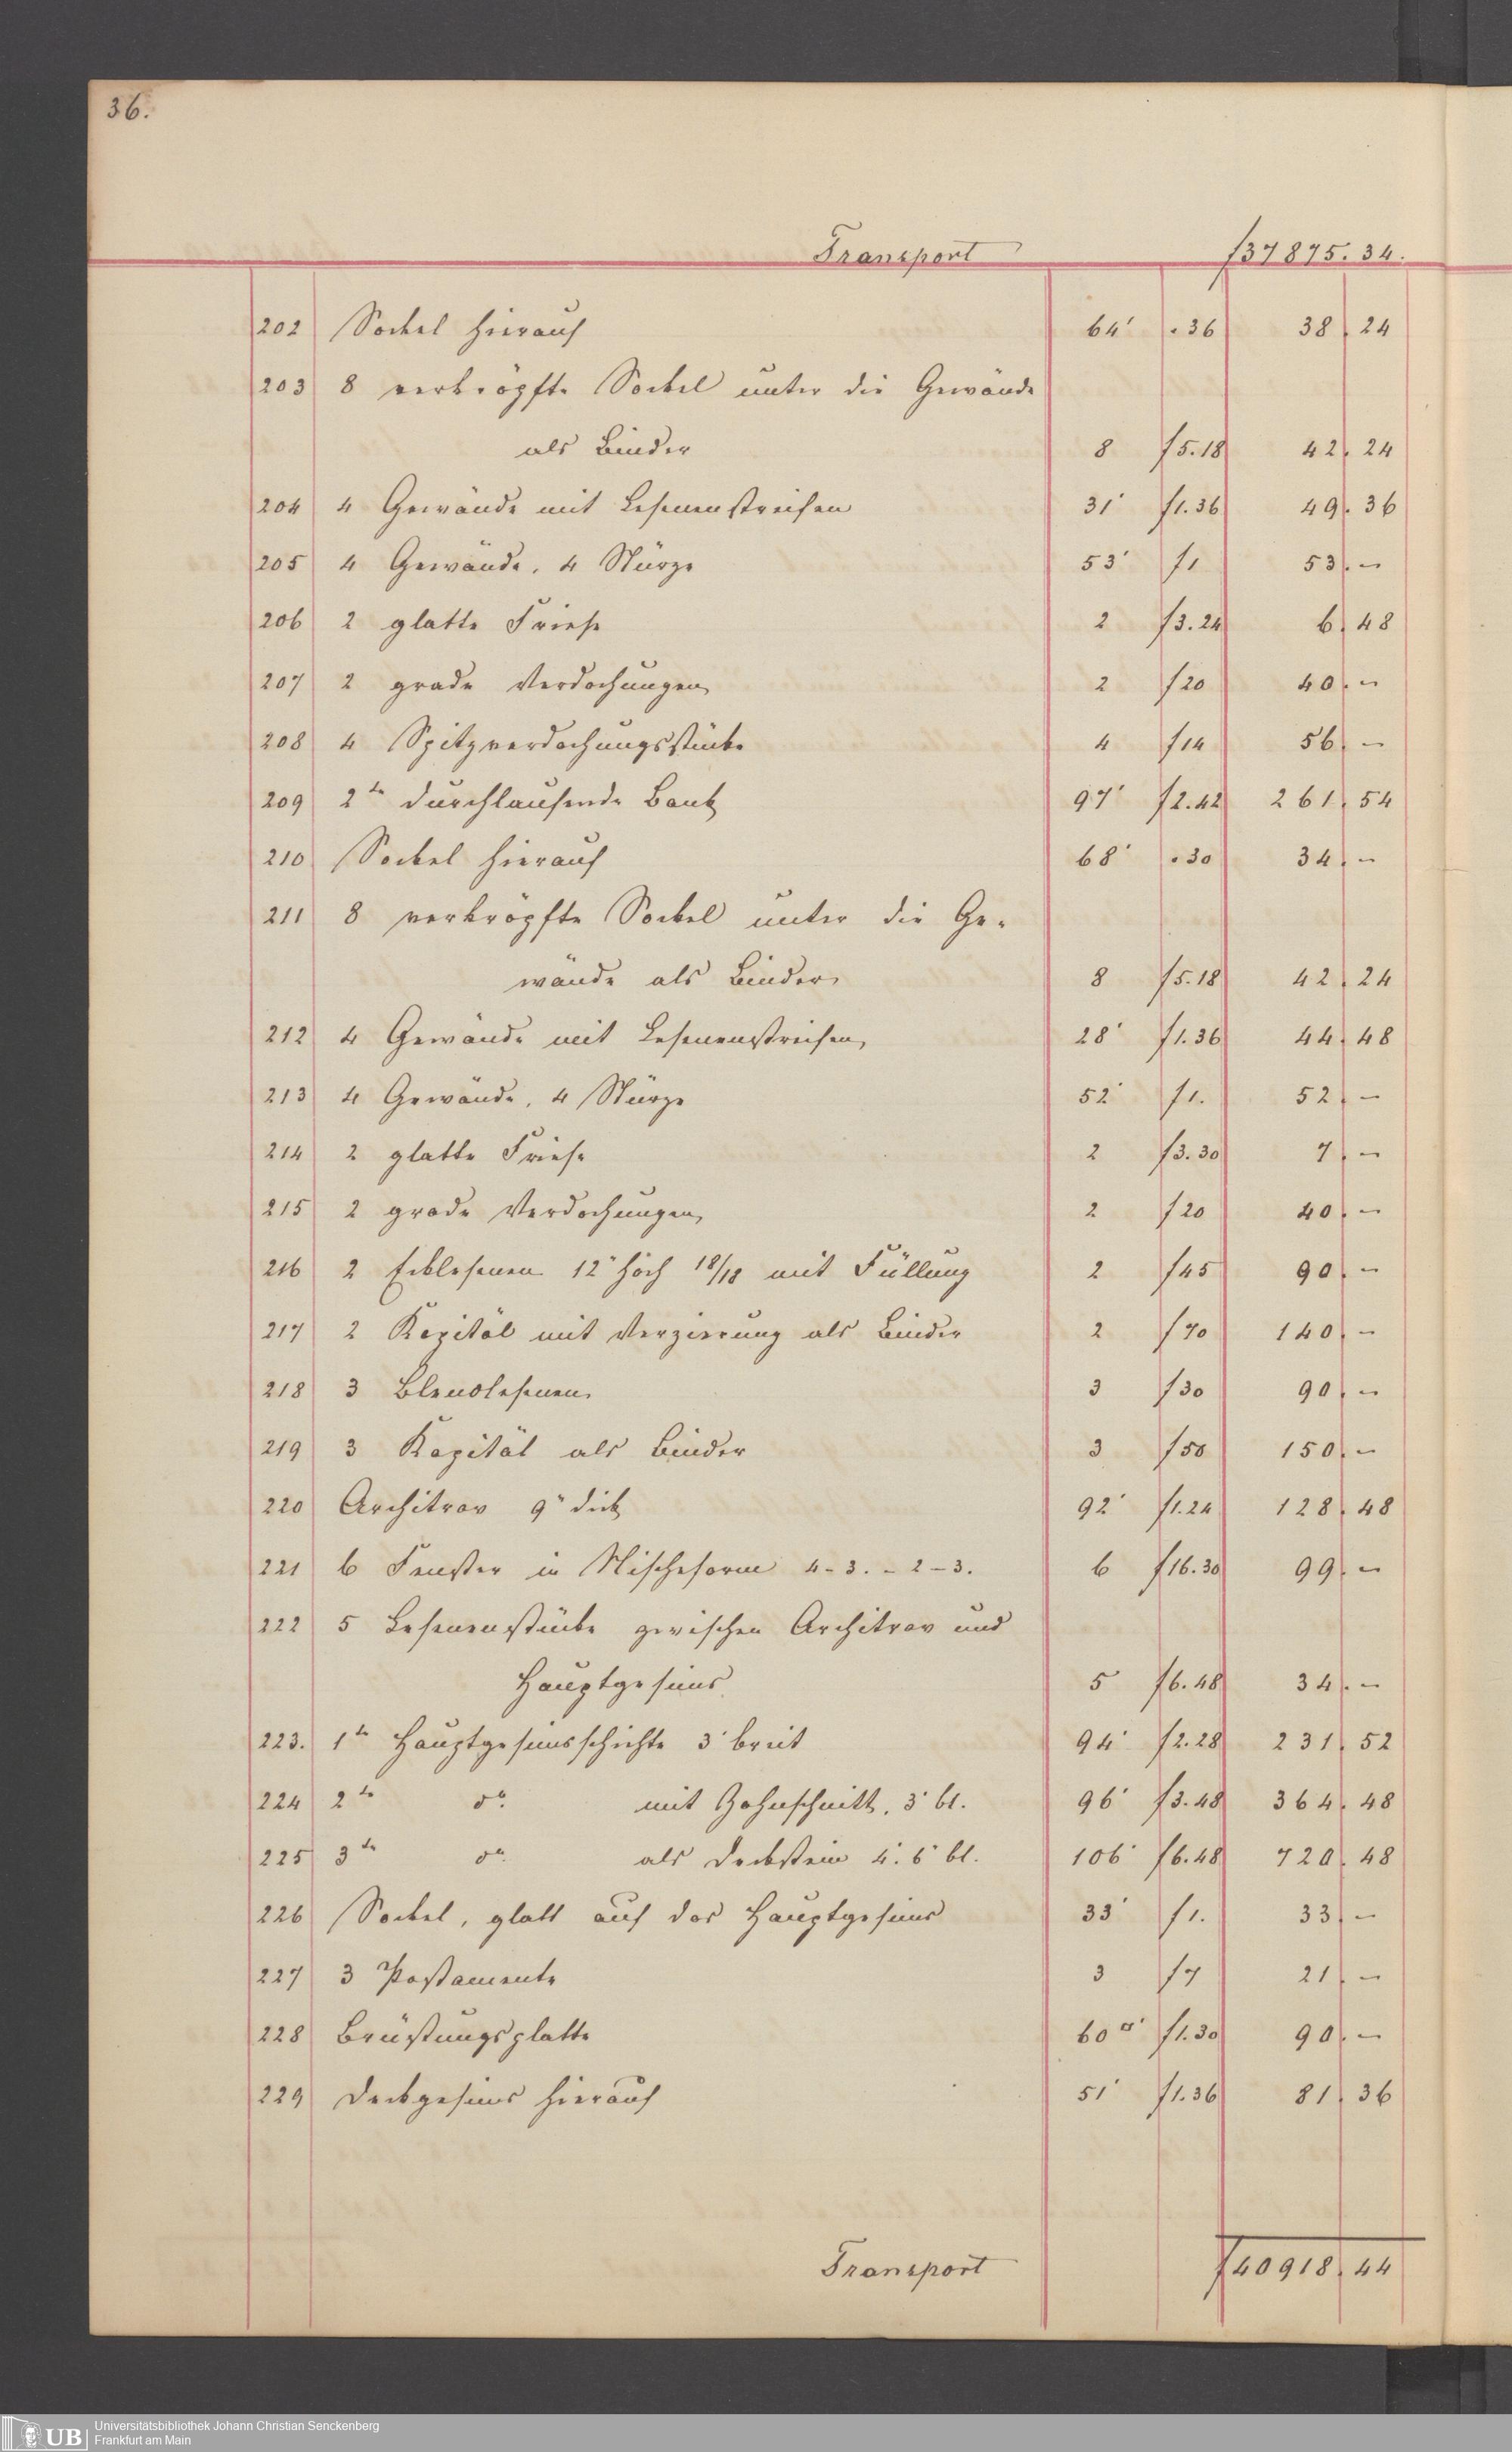 36.
Transport f 37875. 34.
202 Sockel hierauf 64' . 36 38. 24
203 8 verkröpfte Sockel unter die Gewände
als Binder 8 f 5.18 42. 24
204 4 Gewände mit Lesenenstreifen 31' f 1.36 49. 36
205 4 Gewände, 4 Stürze 53' f 1 53. –
206 2 glatte Friese 2 f 3.24 6. 48
207 2 grade Verdachungen 2 f 20 40. –
208 4 Spitzverdachungsstücke 4 f 14 56. –
209 2te durchlaufende Bank 97' f 2.42 261. 54
210 Sockel hierauf 68' . 30 34. –
211 8 verkröpfte Sockel unter die Ge-
wände als Binder 8 f 5.18 42. 24
212 4 Gewände mit Lesenenstreifen 28' f 1.36 44. 48
213 4 Gewände, 4 Stürze 52' f 1. 52. –
214 2 glatte Friese 2 f 3.30 7. –
215 2 grade Verdachungen 2 f 20 40. –
216 2 Ecklesenen 12" hoch 18/18 mit Füllung 2 f 45 90. –
217 2 Kapitäl mit Verzierung als Binder 2 f 70 140. –
218 3 Blendlesenen 3 f 30 90. –
219 3 Kapitäl als Binder 3 f 50 150. –
220 Architrav 9" dick 92' f 1.24 128. 48
221 6 Fenster in Nischeform 4-3. - 2-3. 6 f 16.30 99. –
222 5 Lesenenstücke zwischen Architrav und
Hauptgesims 5 f 6.48 34. –
223. 1te Hauptgesimsschichte 3' breit 94' f 2.28 231. 52
224 2te do. mit Zahnschnitt, 3' bt. 96' f 3.48 364. 48
225 3te do. als Deckstein 4'. 6" bt. 106' f 6.48 720. 48
226 Sockel, glatt auf das Hauptgesims 33' f 1. 33. –
227 3 Postamente 3 f 7 21. –
228 Brüstungsplatte 60□' f 1.30 90. –
229 Deckgesims hierauf 51' f 1.36 81. 36
Transport f 40918. 44
UB Universitätsbibliothek Johann Christian Senckenberg
Frankfurt am Main